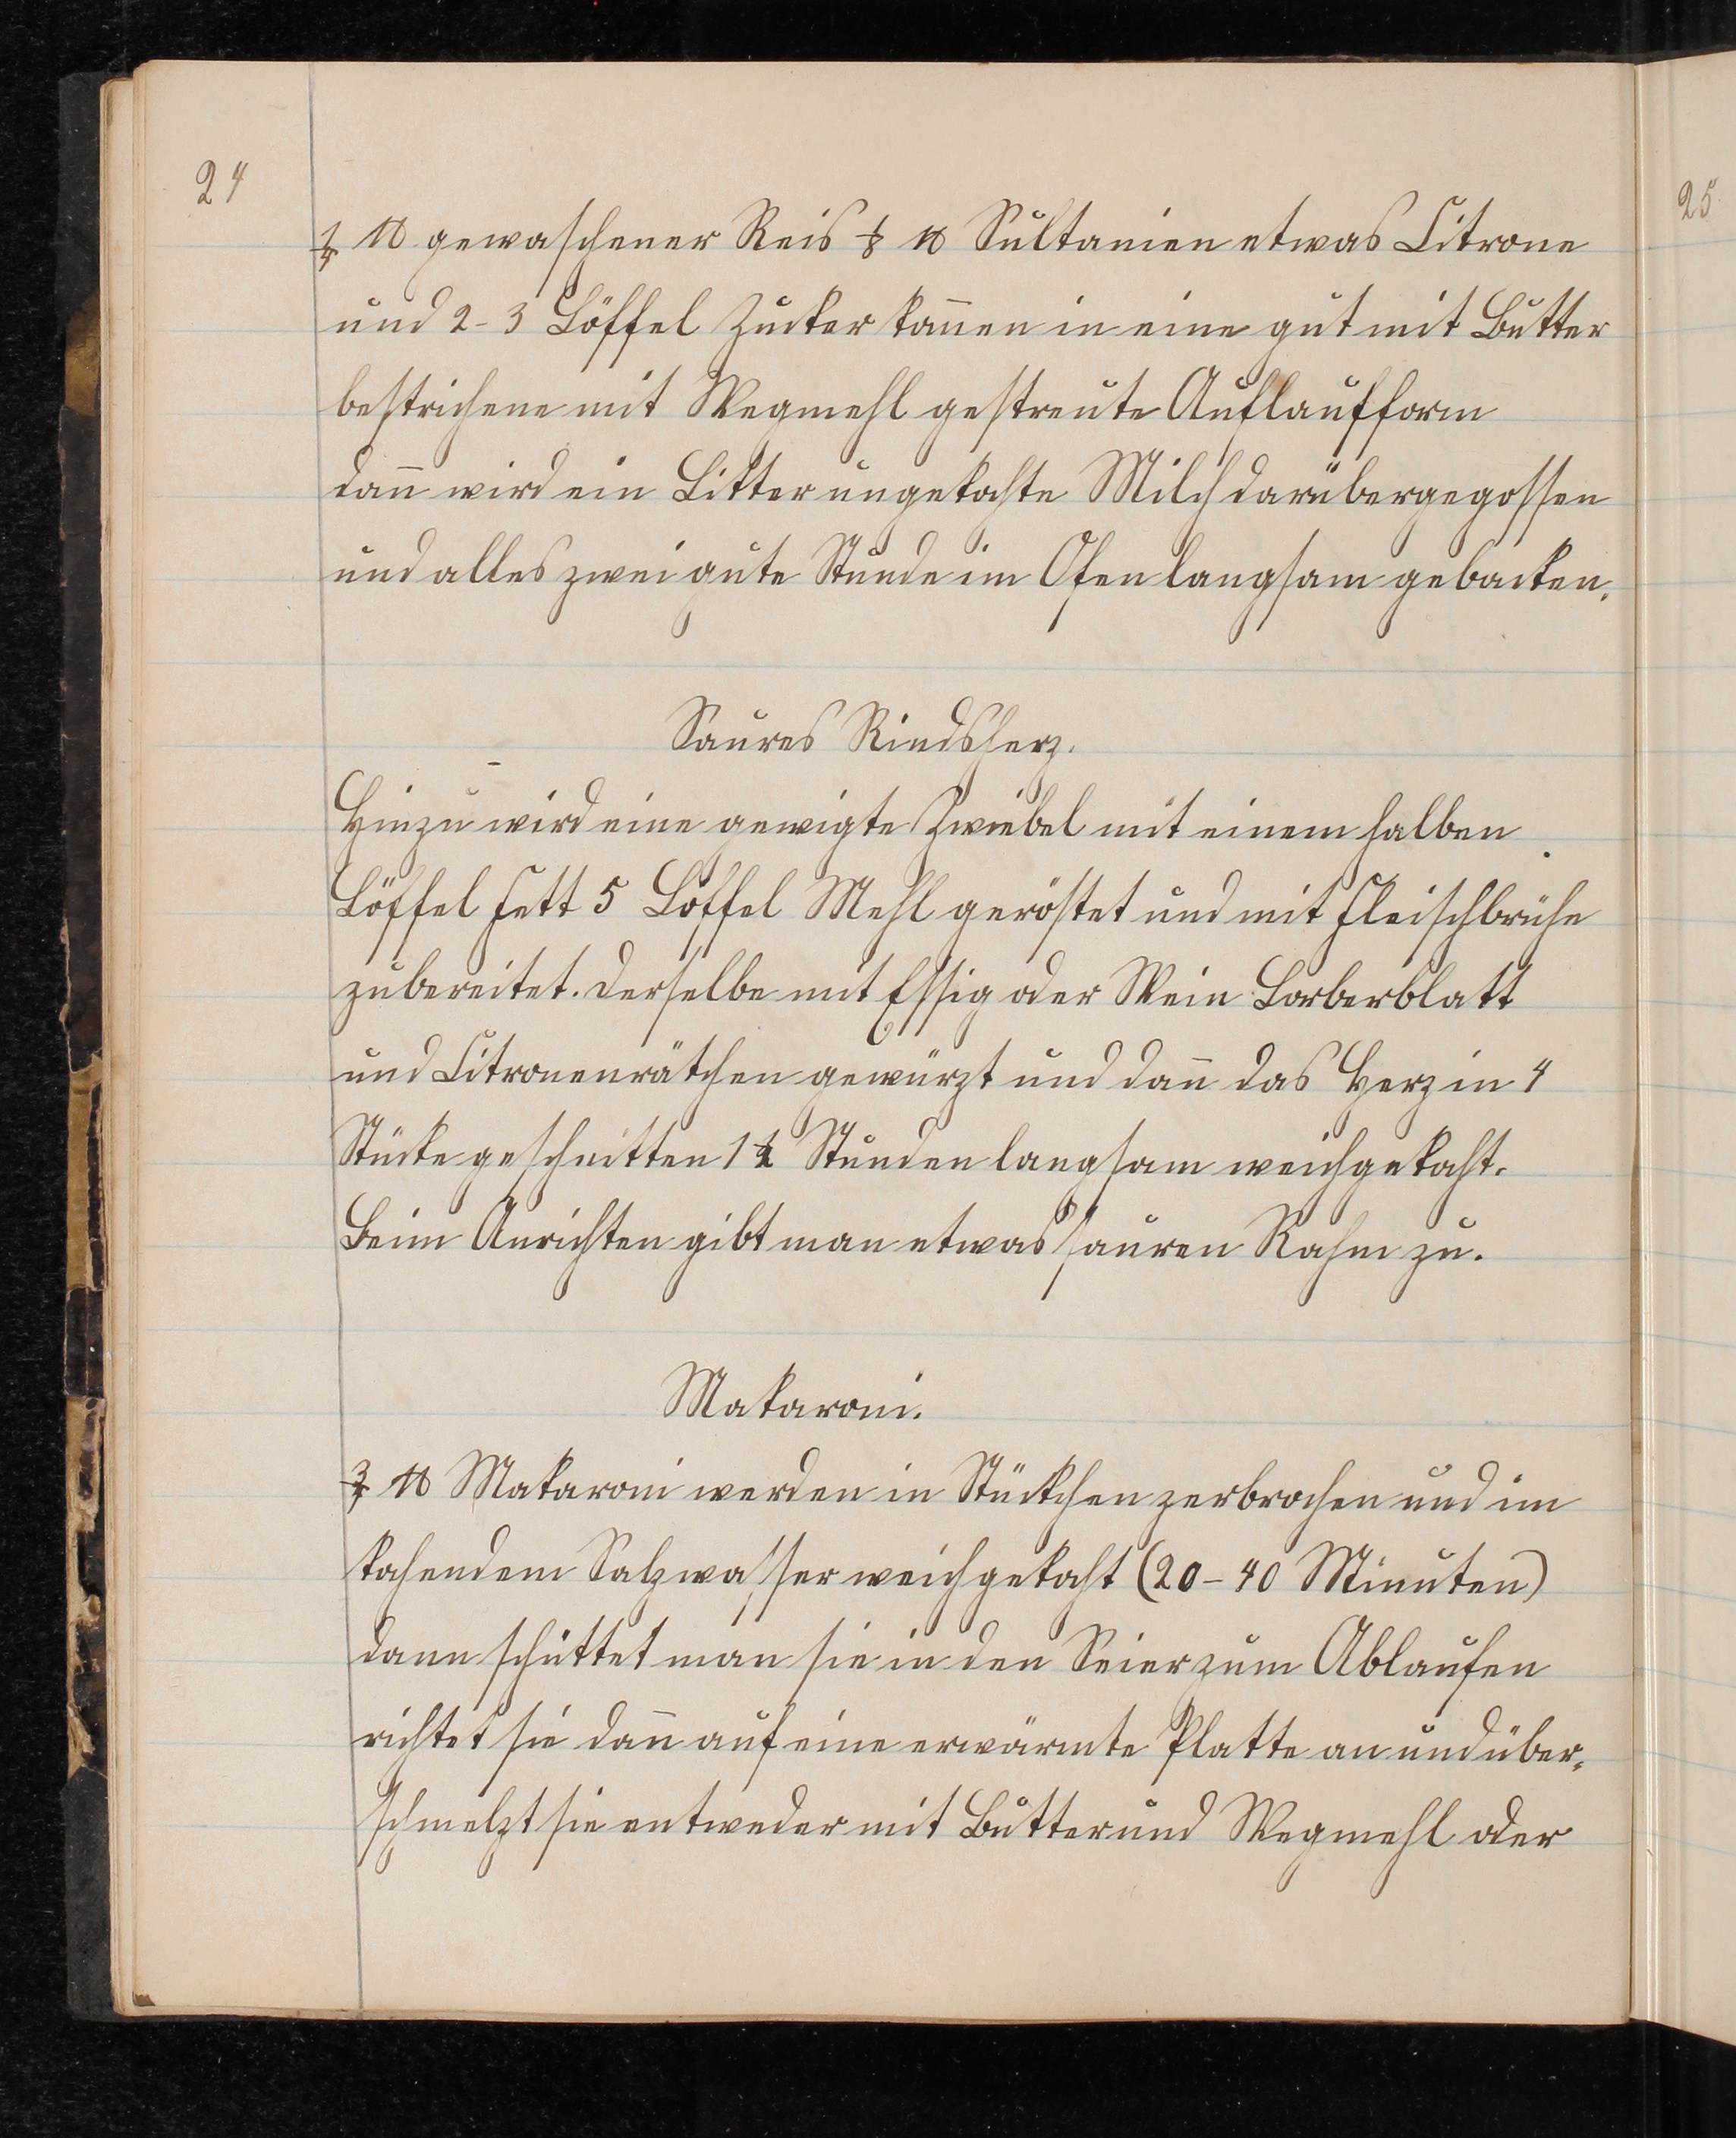 24
25
1/4 ℔ gewaschener Reis 1/8 ℔ Sultanien etwas Citrone
und 2-3 Löffel Zucker kom̄en in eine gut mit Butter
bestrichene mit Wegmehl gestreute Auflaufform
dan̄ wird ein Litter ungekochte Milch darübergegossen
und alles zwei gute Stunde im Ofen langsam gebacken.
Saures Rindsherz.
Hinzu wird eine gewigte Zwiebel mit einem halben
Löffel Fett 5 Löffel Mehl geröstet und mit Fleischbrühe
zubereitet. Derselbe mit Essig oder Wein Lorberblatt
und Citronenrätchen gewürzt und dan̄ das Herz in 4
Stücke geschnitten 1 1/2 Stunden langsam weichgekocht.
Beim Anrichten gibt man etwas sauren Rahm zu.
Makaroni.
3/4 ℔ Makaroni werden in Stückchen zerbrochen und im
kochendem Salzwasser weichgekocht (20-40 Minuten)
dann schüttet man sie in den Seier zum Ablaufen
richtet sie dan̄ auf eine erwärmte Platte an und über-
schmelzt sie entweder mit Butter und Wegmehl oder